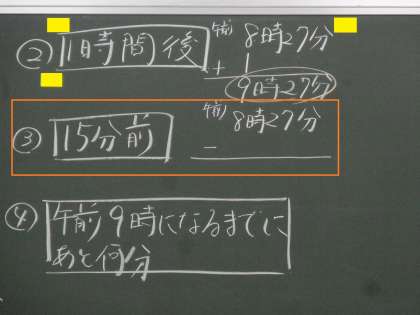 ② 1時間後 午前 8時27分
+ 1
9時27分
③ 15分前 午前 8時27分
−
④ 午前9時になるまでに
あと何分